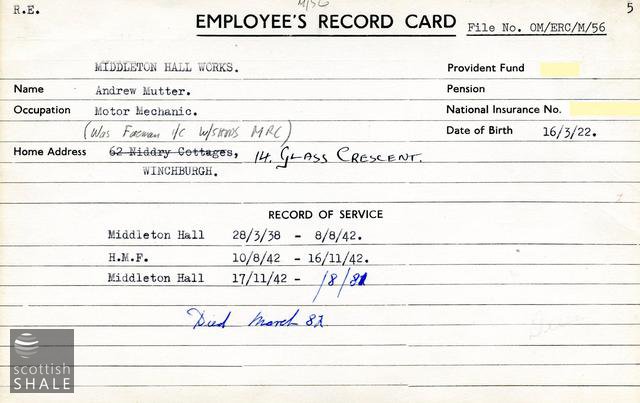 R.E.
M/56
5
EMPLOYEE'S RECORD CARD File No. OM/ERC/M/56
MIDDLETON HALL WORKS.
Provident Fund
Name Andrew Mutter.
Pension
Occupation Motor Mechanic.
National Insurance No.
(Was Foreman i/c W/SHOPS MRC)
Date of Birth 16/3/22.
Home Address 62 Niddry Cottages, 14, GLASS CRESCENT.
WINCHBURGH.
RECORD OF SERVICE
Middleton Hall 28/3/38 - 8/8/42.
H.M.F. 10/8/42 - 16/11/42.
Middleton Hall 17/11/42 - /8/81
Died March 82
scottish
SHALE